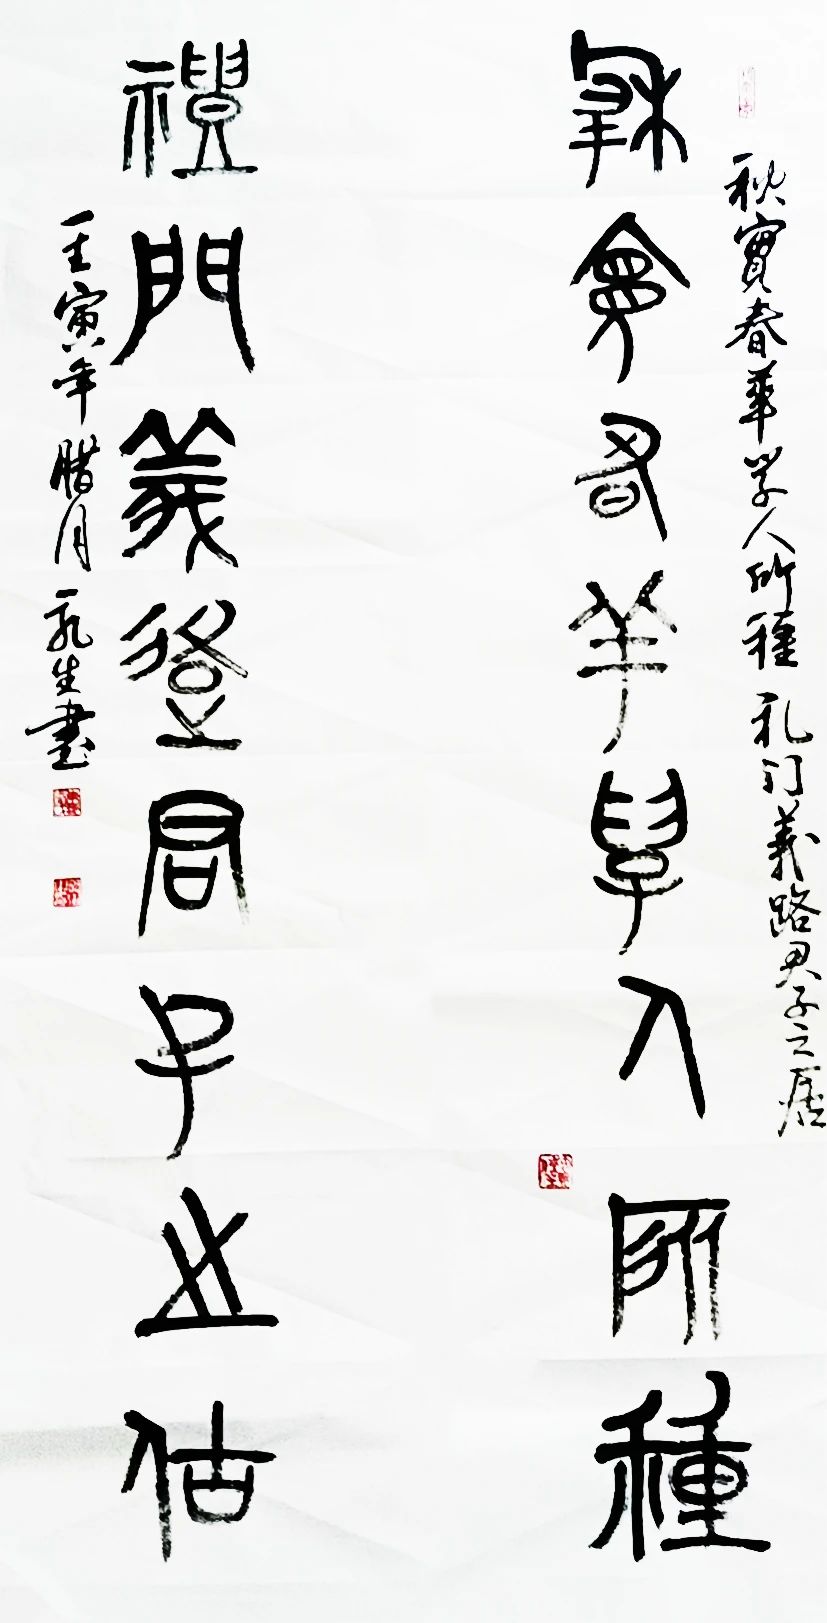 秋實春華学人所種 礼门義路君子之居
秋實春華學人所種
禮門義路君子之居
壬寅年腊月 生書